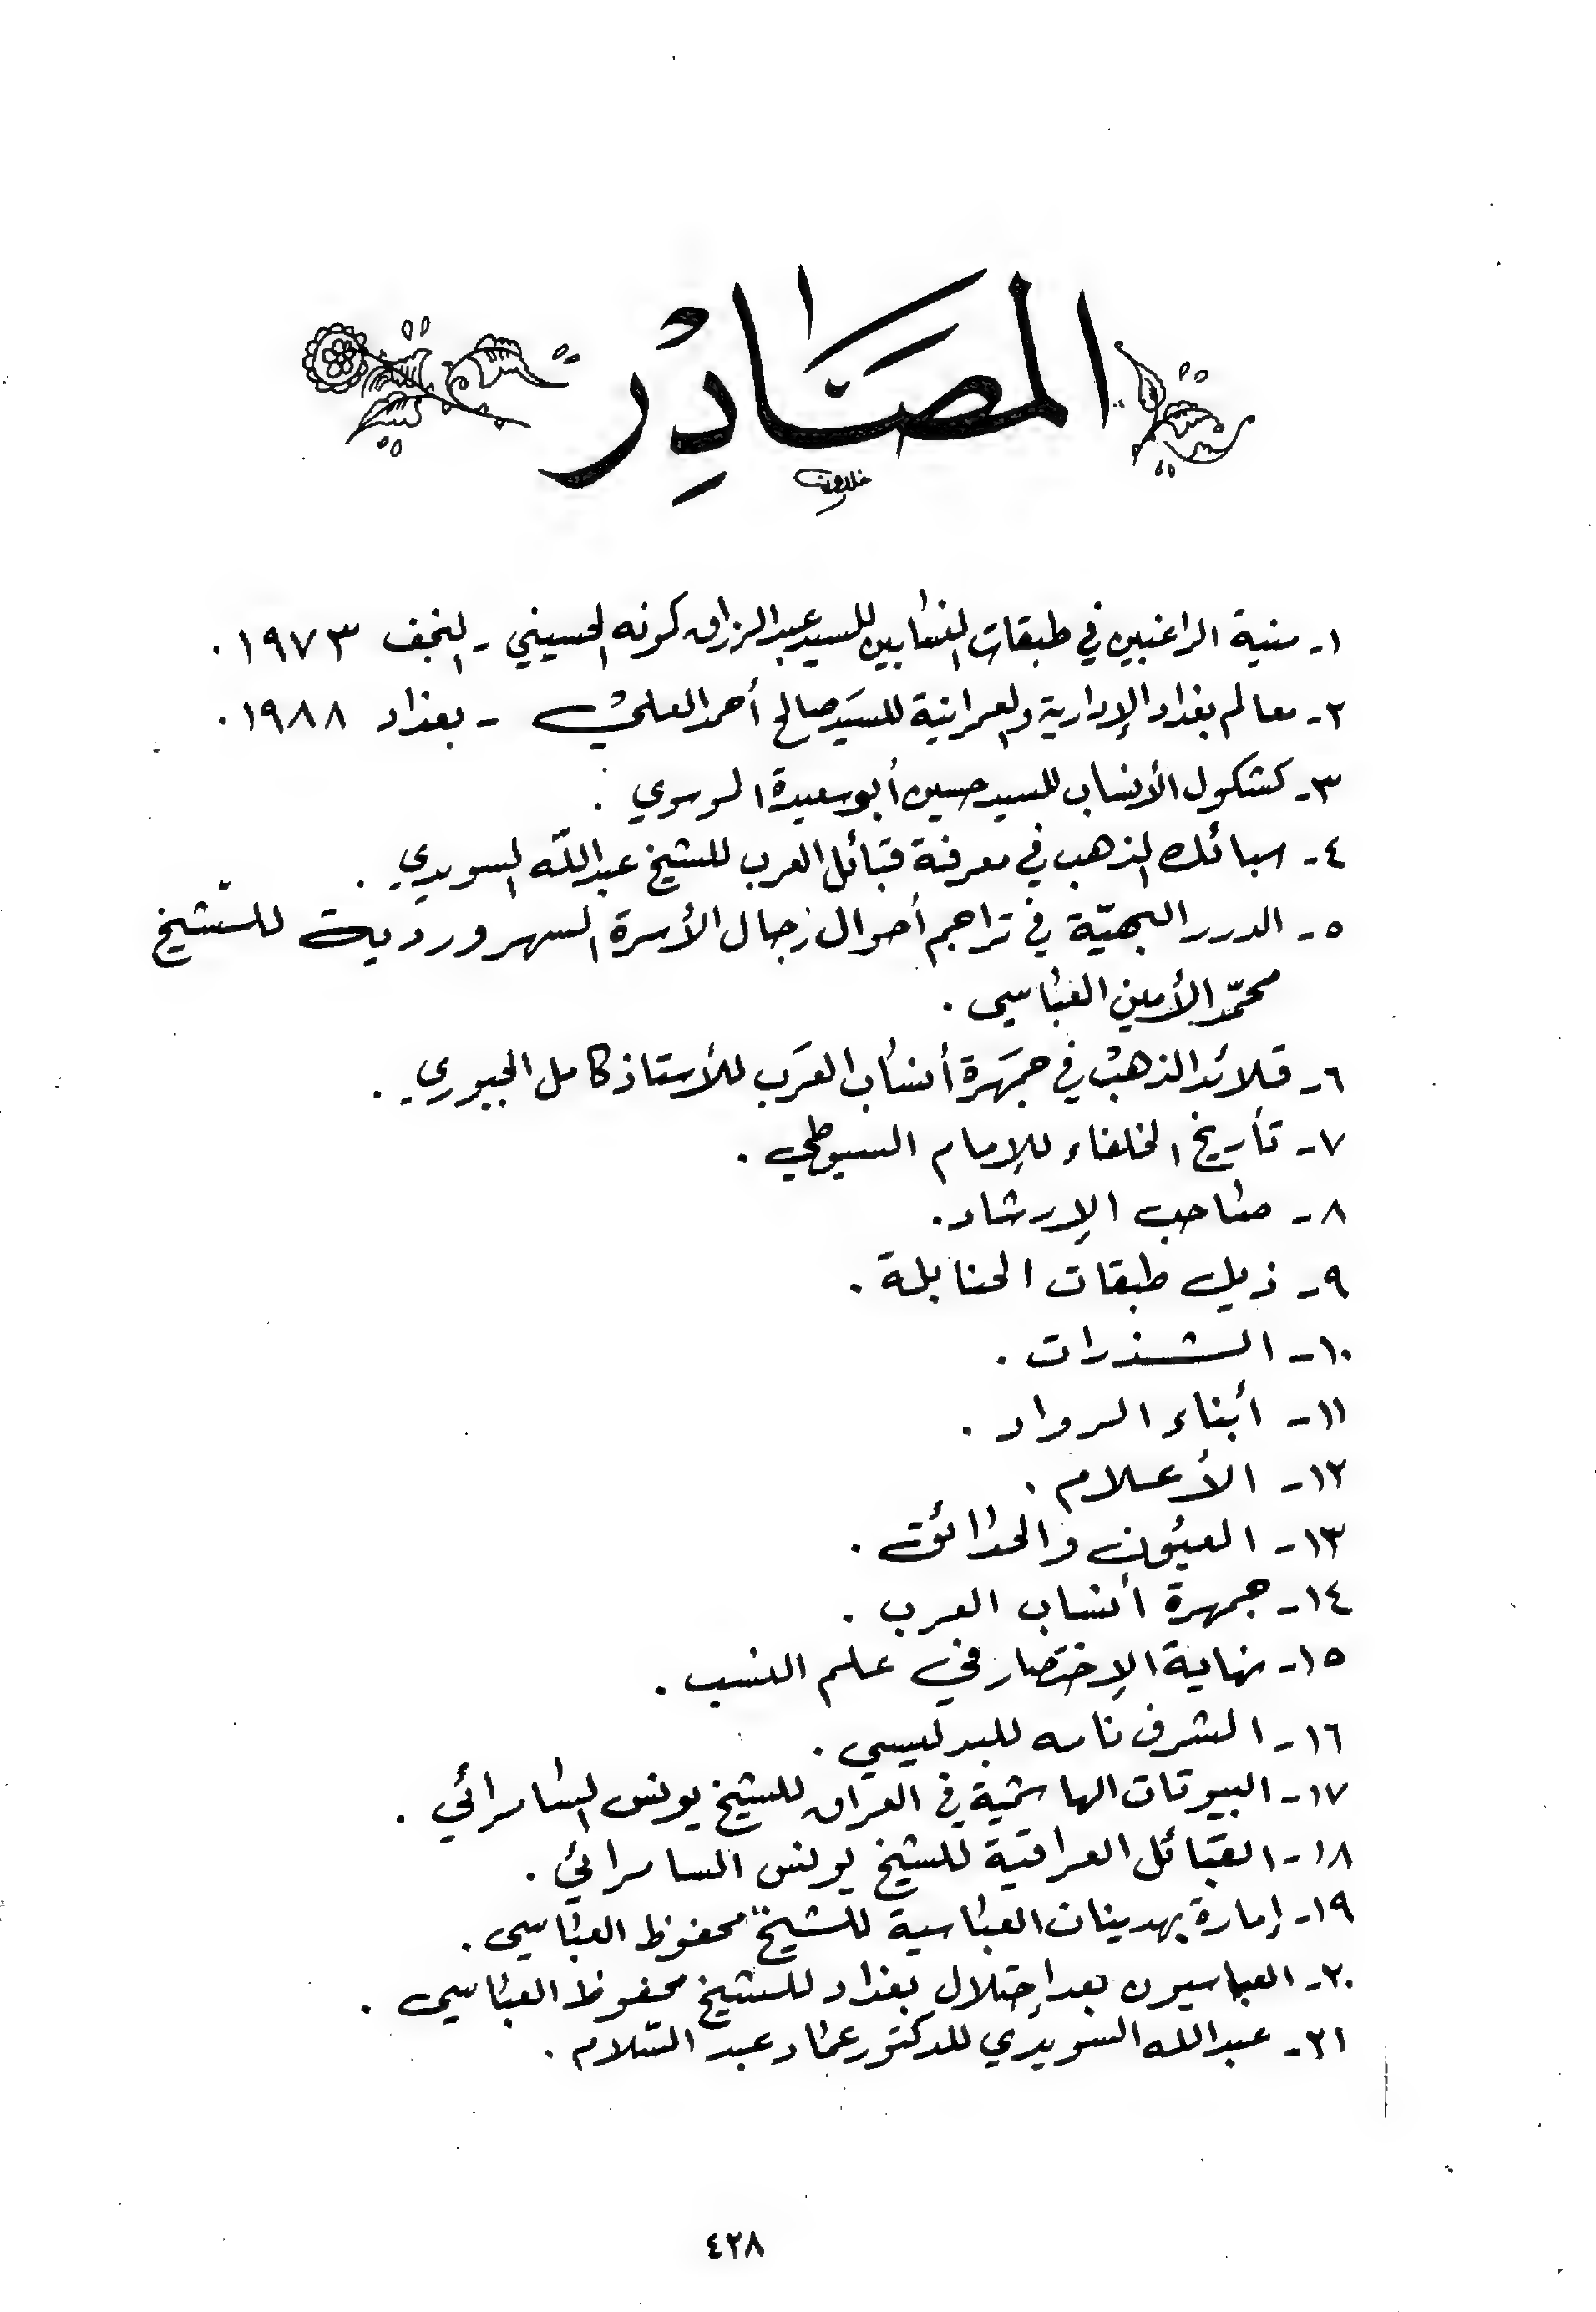 المَصَادِرْ
خلدون
١- منية الراغبين في طبقات النسابين للسيد عبدالرزاق كمونه الحسيني - النجف ١٩٧٣ .
٢- معالم بغداد الإدارية والعمرانية للسيد صالح أحمد العلي - بغداد ١٩٨٨ .
٣- كشكول الأنساب للسيد حسين أبو سعيدة الموسوي .
٤- سبائك الذهب في معرفة قبائل العرب للشيخ عبدالله السويدي .
٥- الدرر البهيّة في تراجم أحوال رجال الأسرة السهروردية للشيخ
محمّد الأمين العباسي .
٦- قلائد الذهب في جمَهرة أنساب العَرَب للأستاذ كامل الجبوري .
٧- تأريخ الخلفاء للإمام السيوطي .
٨- صاحب الإرشاد .
٩- ذيل طبقات الحنابلة .
١٠- الشذرات .
١١- أبناء الرواد .
١٢- الأعلام .
١٣- العيون والحدائق .
١٤- جمهرة أنساب العرب .
١٥- نهاية الإختصار في علم النسب .
١٦- الشرف نامه للبدليسي .
١٧- البيوتات الهاشمية في العراق للشيخ يونس السامرائي .
١٨- القبائل العراقية للشيخ يونس السامرائي .
١٩- إمارة بهدينان العباسية للشيخ محفوظ العباسي .
٢٠- العباسيون بعد إحتلال بغداد للشيخ محفوظ العباسي .
٢١- عبدالله السويدي للدكتور عماد عبد السّلام .
٤٢٨